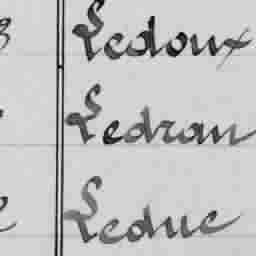 Ledoux
Ledran
Leduc